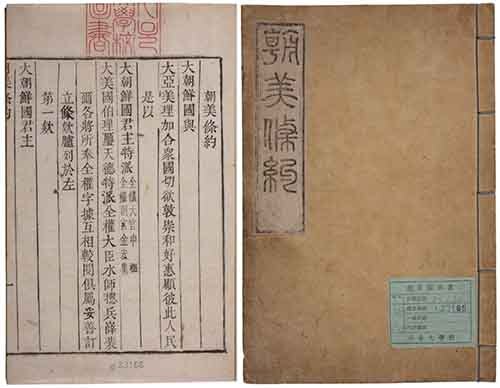 朝美條約
大朝鮮國與
大亞美理加合衆國切欲敦崇和好惠顧彼此人民
是以
大朝鮮國君主特派全權大官申櫶全權副官金宏集
大美國伯理璽天德特派全權大臣水師總兵薛斐
爾各將所奉全權字據互相較閱俱屬妥善訂
立條款臚列於左
第一款
大朝鮮國君主
朝美條約